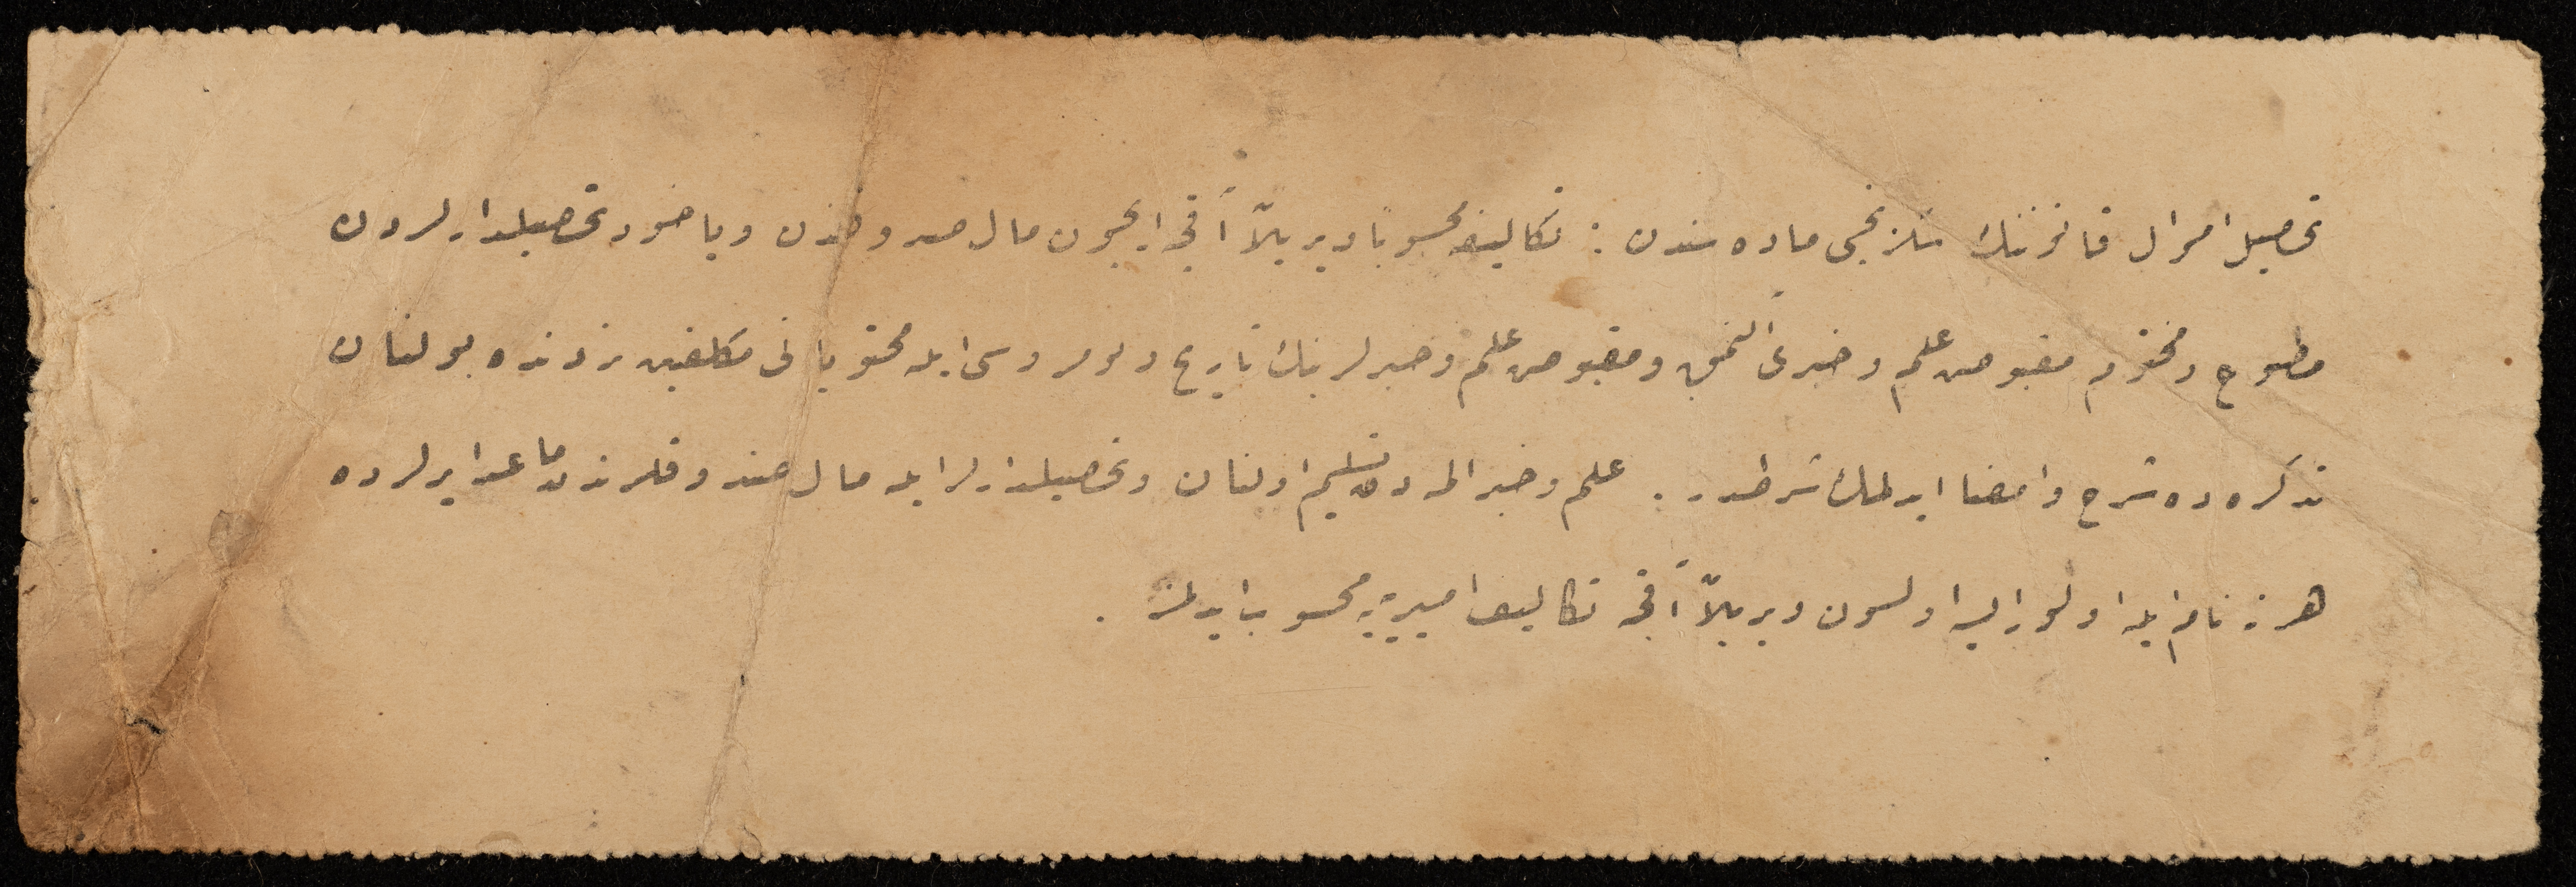 تحصیل اموال قانوننك سكزنجی ماده سندن : تكالیفه محسوباً ویریلان آقچه ایچون مال صندوغندن ویاخود تحصیلدارلردن
مطبوع ومختوم مقبوض علم وخبری آلنمق ومقبوض علم وخبرلرینك تاریخ ونومروسی ایله محتویاتی مكلفین نزدنده بولنان
تذكره ده شرح وامضا ایدلمك شرطدر . علم وخبر المه دن تسلیم اولنان وتحصیلدارلر ایله مال صندوقلرندن ماعدا یرلرده
هر نه نام ایله اولور ایسه اولسون ویریلان آقچه تكالیف امیریه یه محسوب ایدلمز .